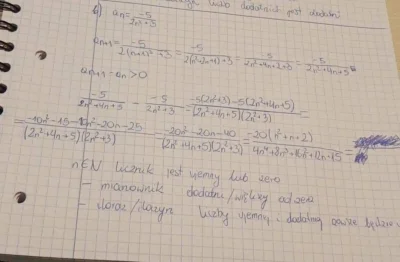 liczb dodatnich jest dodatni
b) an = -5 / 2n²+3
an+1 = -5 / 2(n+1)²+3 = -5 / 2(n²+2n+1)+3 = -5 / 2n²+4n+2+3 = -5 / 2n²+4n+5
an+1 - an > 0
-5 / 2n²+4n+5 - -5 / 2n²+3 = -5(2n²+3)-5(2n²+4n+5) / (2n²+4n+5)(2n²+3) =
= -10n²-15-10n²-20n-25 / (2n²+4n+5)(2n²+3) = -20n²-20n-40 / (2n²+4n+5)(2n²+3) = -20(n²+n+2) / 4n⁴+8n³+16n²+12n+15
n∈N licznik jest ujemny lub zero
- mianownik dodatni/większy od zera
- iloraz/iloczyn liczby ujemnej i dodatniej zawsze będzie